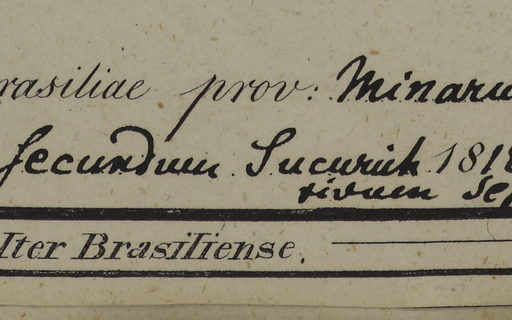 rasiliae prov: Minaru
secundum Sucuriuh 1818
rivum Sep
Iter Brasiliense.